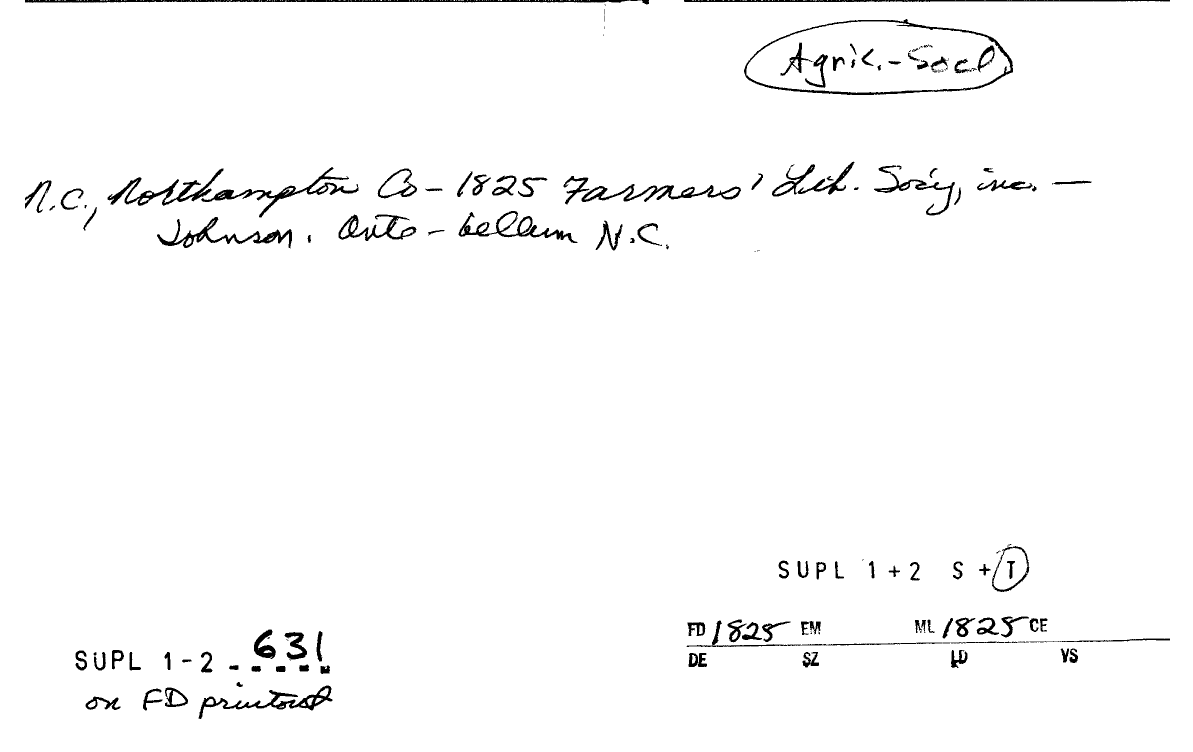 Agric.-Socl.
N.C., Northampton Co – 1825 Farmers' Lib. Soc'y, inc. —
Johnson. Ante-bellum N.C.
SUPL 1+2 S+T
FD 1825 EM ML 1825 CE
DE SZ LD VS
SUPL 1-2 631
on FD printout